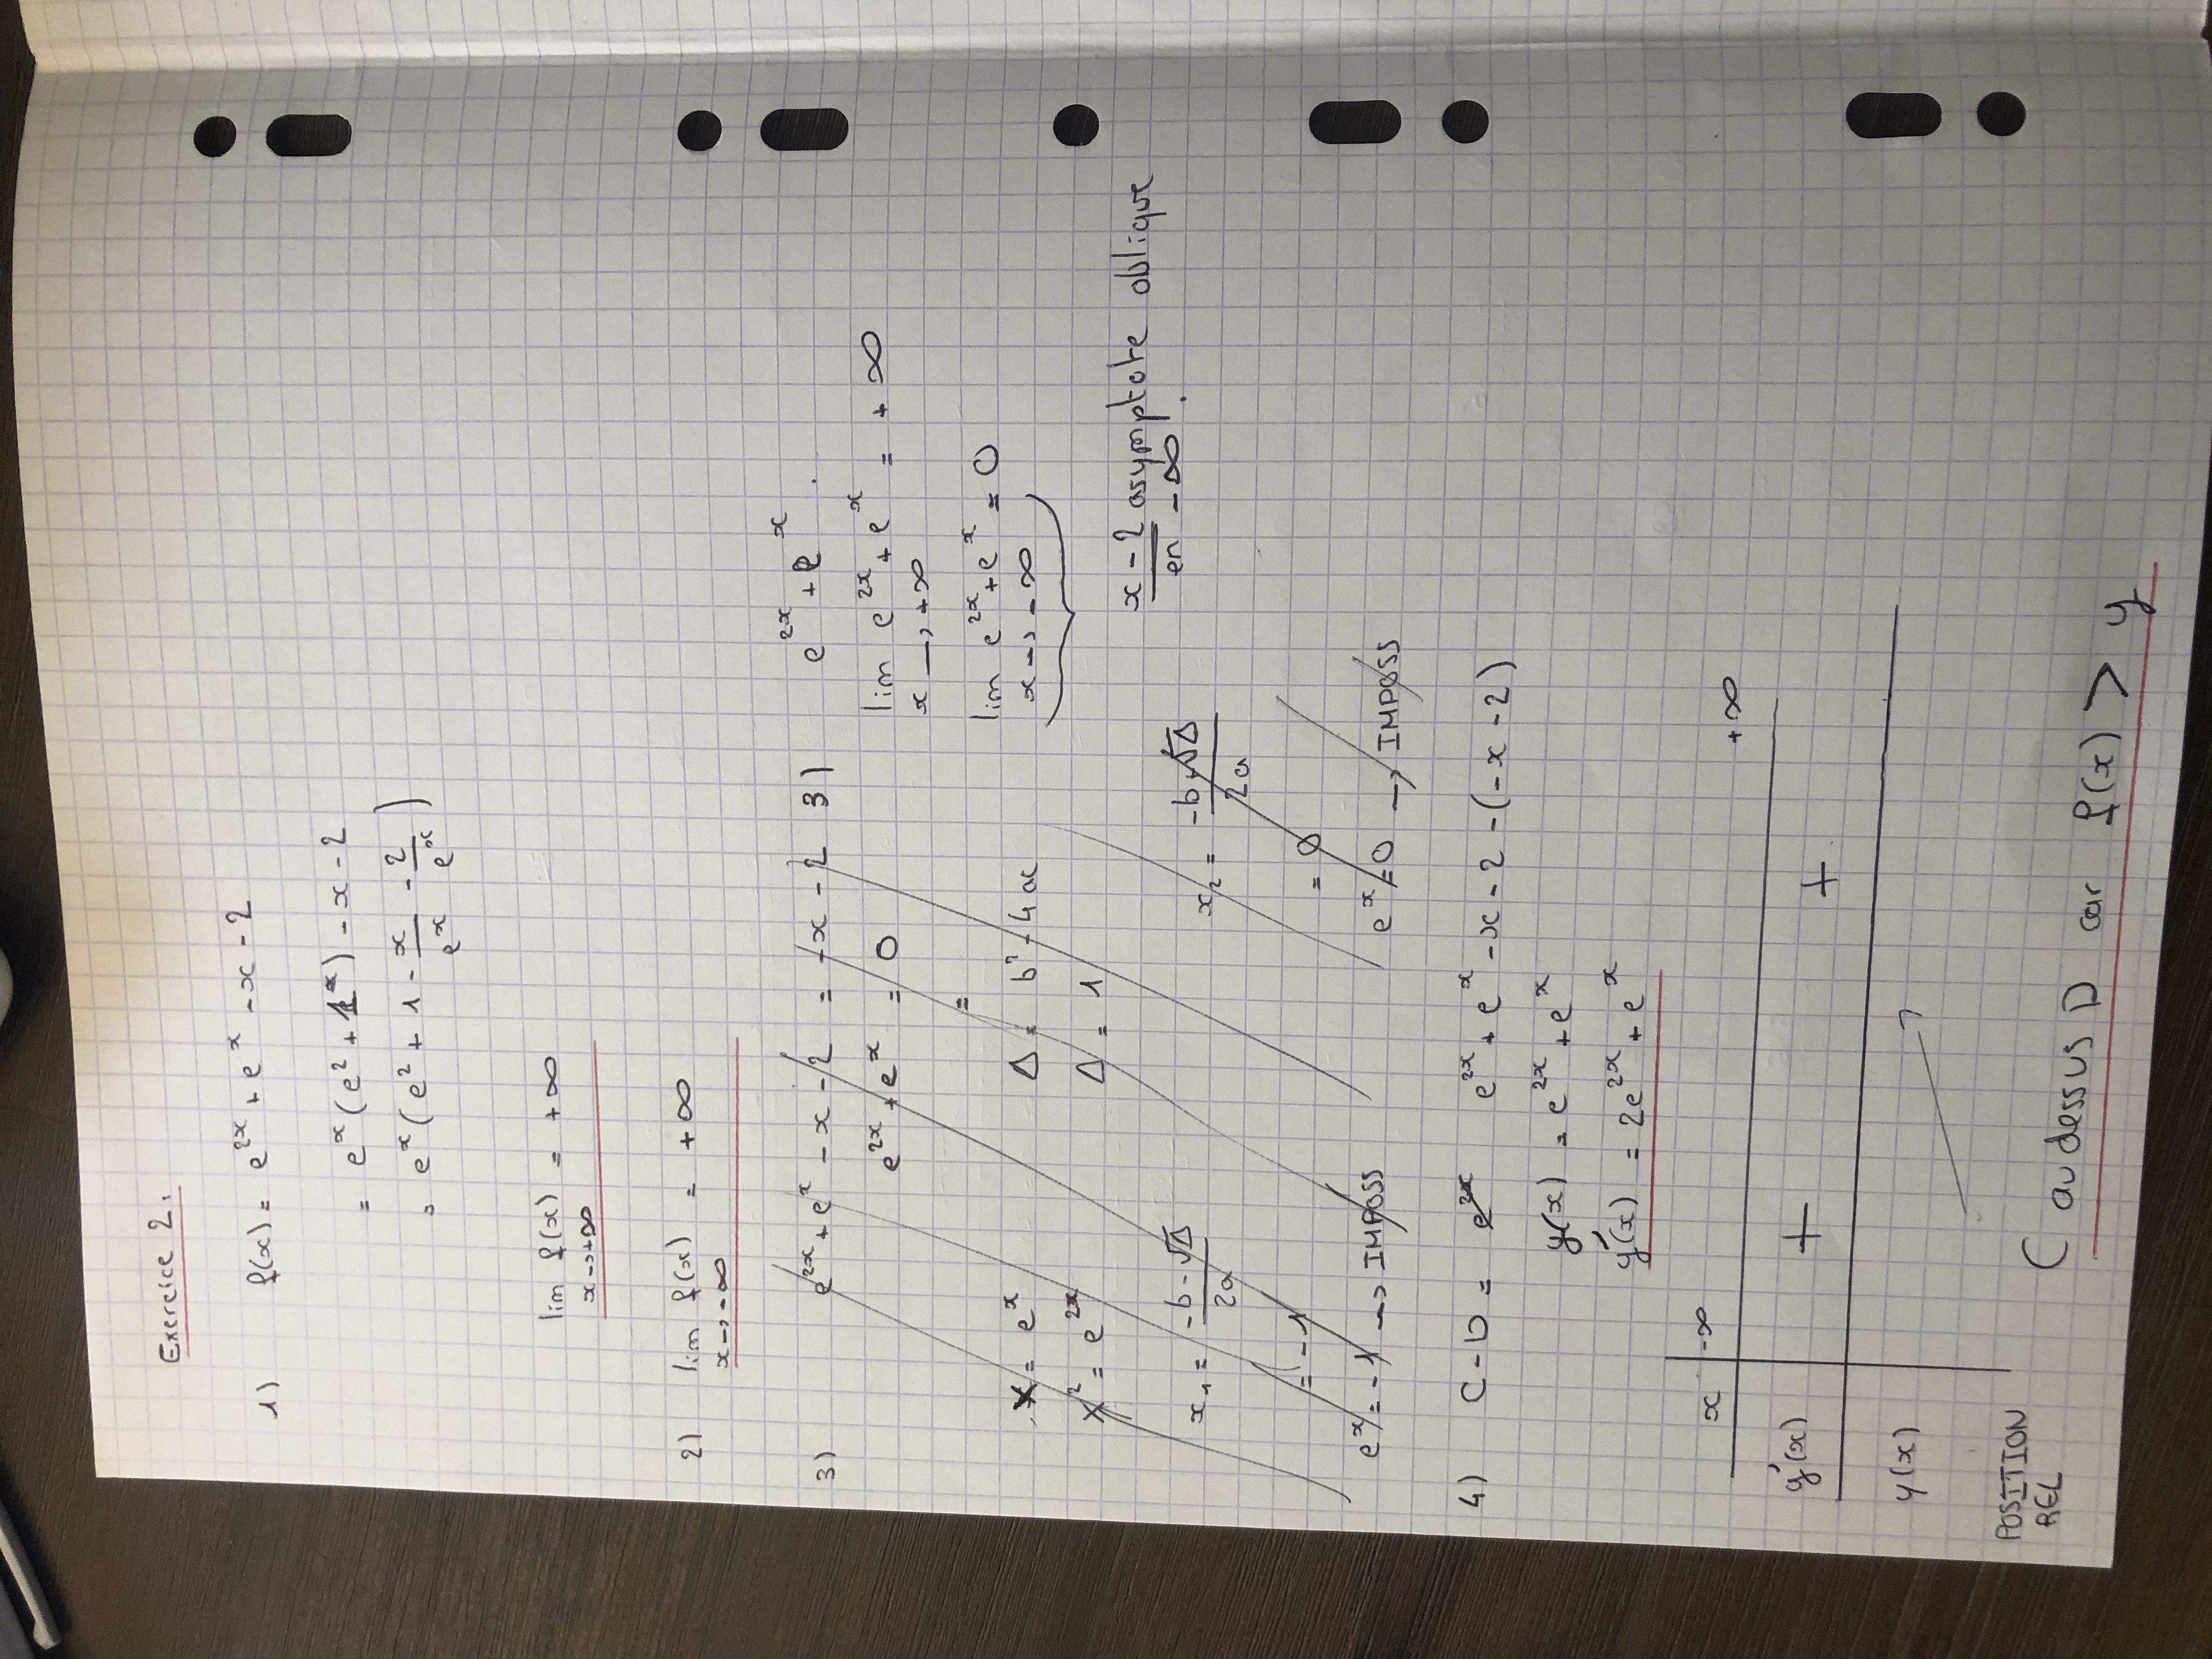 Exercice 2.
1) f(x) = e^{2x} + e^x - x - 2
= e^x (e^2 + 1) - x - 2
= e^x (e^2 + 1 - x/e^x - 2/e^x)
lim f(x) = +∞
x→+∞
2) lim f(x) = +∞
x→-∞
3) e^{2x} + e^x - x - 2 = -x - 2
e^{2x} + e^x = 0
=
X = e^x Δ = b² - 4ac
X² = e^{2x} Δ = 1
x₁ = (-b - √Δ)/2a x₂ = (-b + √Δ)/2a
= -1 = 0
e^x = -1 → IMPOSS e^x = 0 → IMPOSS
3) e^{2x} + e^x .
lim e^{2x} + e^x = +∞
x → +∞
lim e^{2x} + e^x = 0
x → -∞
x - 2 asymptote oblique
en -∞ .
4) C - D = e^{2x} e^{2x} + e^x - x - 2 - (-x - 2)
y(x) = e^{2x} + e^x
y'(x) = 2e^{2x} + e^x
x -∞ +∞
y'(x) + +
y(x) ↗
POSITION
REL
C au dessus D car f(x) > y